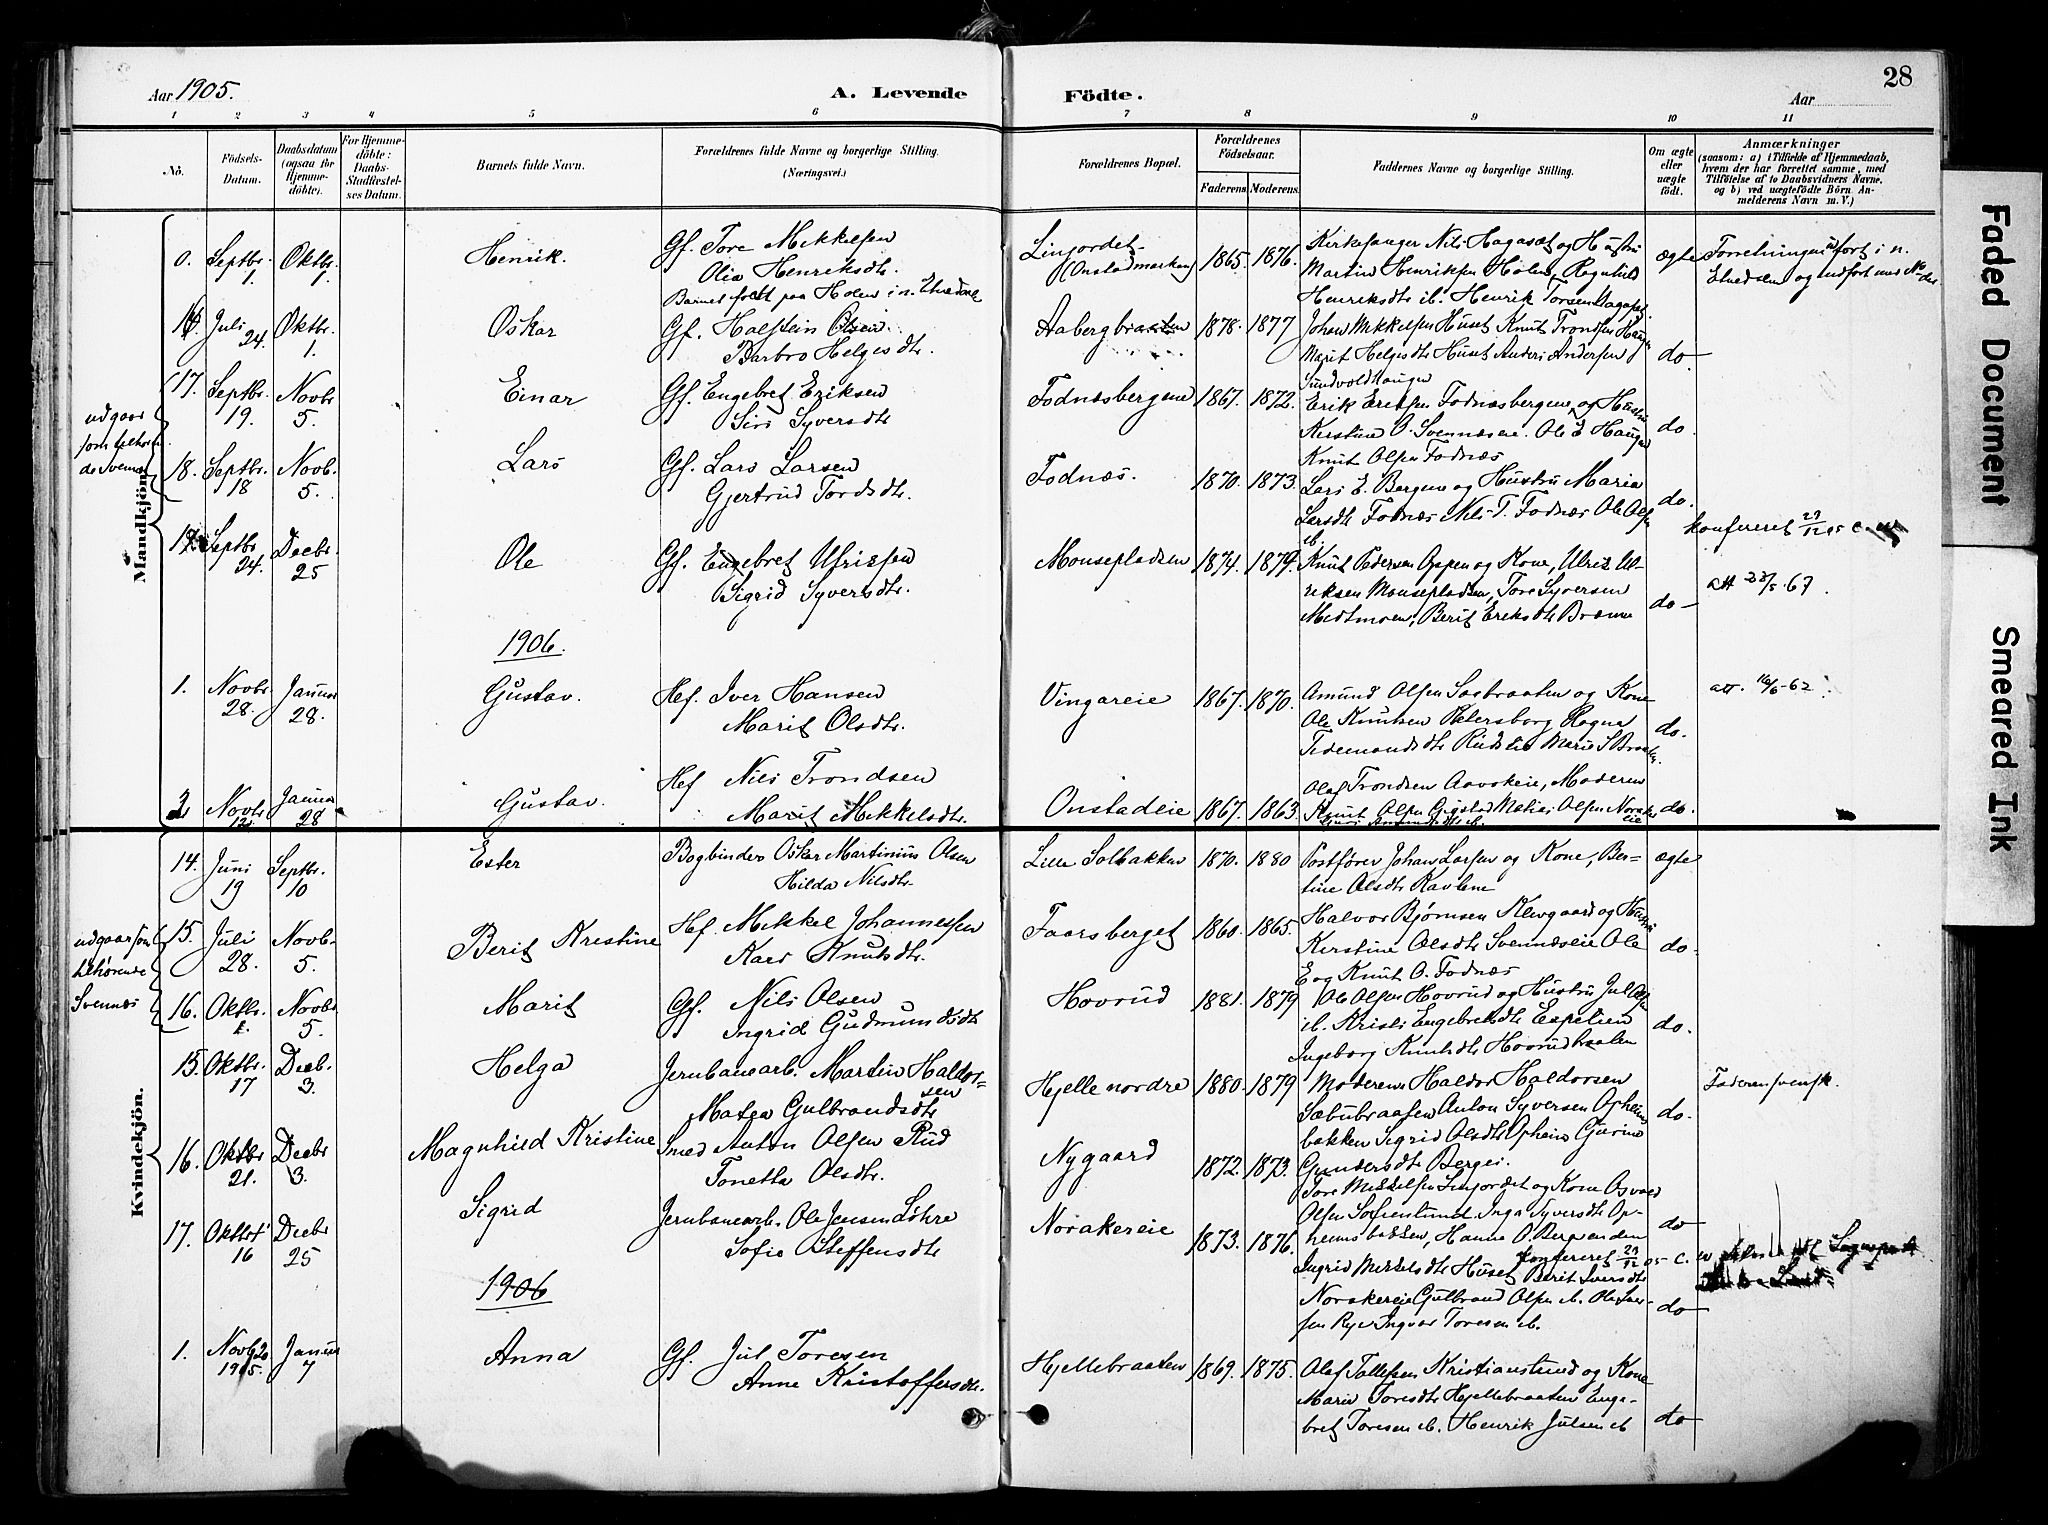 28
Aar 1905.
A. Levende Födte.
Aar
1 2 3 4 5 6 7 8 9 10 11
No.
Födsels-Datum.
Daabsdatum (ogsaa for Hjemme-döbte).
For Hjemme-döbte: Daabs-Stadfæstel-ses Datum.
Barnets fulde Navn.
Forældrenes fulde Navne og borgerlige Stilling.
(Næringsvei.)
Forældrenes Bopæl.
Forældrenes Födselsaar.
Faderens. Moderens.
Faddernes Navne og borgerlige Stilling.
Om ægte eller uægte födt.
Anmærkninger
(saasom: a) i Tilfælde af Hjemmedaab, hvem der har forrettet samme, med Tilföielse af to Daabsvidners Navne, og b) ved uægtefödte Börn Anmelderens Navn m. V.)
Mandkjön.
0. Septbr. 1. Oktbr. 1. Henrik. Gf. Tore Mikkelsen
Olia Henriksdtr.
Barnet født paa Holen i n. Etnedal
Linjordet (Onstadmarken) 1865. 1876. Kirkesanger Nils Hagasæt og Hustru
Martin Henriksen Holen, Ragnhild
Henriksdtr ib. Henrik Toresen Hagaset.
ægte
Juli 24. Oktbr. 1. Oskar Gf. Halstein Olsen
Barbro Helgesdtr.
Aabergbraaten 1878. 1877 Johan Mikkelsen Huset Knut Trondsen Haugen
Marit Helgesdtr Huset Anders Andersen
Sundvoldhaugen
do
17. Septbr. 19. Novbr 5. Einar Gf. Engebret Eriksen
Siri Syversdtr
Fodnæsbergene 1867. 1872. Erik Eriksen Fodnæsbergene og Hustru
Kerstine O. Svennæseie. Ole E Haugen
Knut Olsen Fodnæs
do.
udgaar som tilhørende Svennæs
18. Septbr. 18 Novb. 5. Lars Gf. Lars Larsen
Gjertrud Tordsdtr.
Fodnæs. 1870. 1873. Lars E. Bergene og Hustru Maria
Larsdtr Fodnæs Nils T. Fodnæs Ole Olsen
ib.
do.
konfereret 29/12 05
Septbr 24. Decbr. 25 Ole Gf. Engebret Ulriksen
Sigrid Syversdtr.
Mousepladsen 1874. 1879. Knut Pedersen Oppen og Kone, Ulrik Ul-
riksen Mousepladsen, Tore Syversen
Medtmoen, Berit Eriksdtr Bræna
do
att 23/5-67.
1906.
1. Novbr. 28. Januar 28. Gustav. Hef. Iver Hansen
Marit Olsdtr.
Vingareie 1867. 1870. Amund Olsen Sæbraaten og Kone
Ole Knutsen Petersborg Ragna
Tidemandsdtr Rudslie Marie S Braaten.
do.
att. 16/6-62.
2 Novbr 12. Januar 28 Gustav. Hef Nils Trondsen
Marit Mikkelsdtr.
Onstadeie 1867. 1863. Olaf Trondsen Aavokeie, Moderen
Knut Olsen Gigstad Mathias Olsen Noraker
do.
Kvindekjön.
14. Juni 19 Septbr. 10 Ester Bogbinder Oskar Martinius Olsen
Hilda Nilsdtr.
Lille Solbakken 1870. 1880 Postfører Johan Larsen og Kone, Ber-
tine Olsdtr Kavlene
ægte
udgaar som tilhørende Svennæs
15. Juli 28. Novb. 5. Berit Kristine Hef. Mikkel Johannessen
Kari Knutsdtr.
Faarsberget 1860. 1865. Halvor Bjørnsen Klevgaard og Hustru
Kerstine Olsdtr Svennæseie Ole
E og Knut O. Fodnæs
do.
16. Oktbr. 1. Novbr 5. Marit Gf. Nils Olsen
Ingrid Gudmundsdtr
Hovrud 1881. 1879 Ole Olsen Hovrud og Hustru Jul Olsen
ib. Kristi Engebretsdtr Espelien
Ingeborg Knutsdtr Hovrudbraaten
do.
15. Oktbr. 17 Decb. 3. Helga Jernbanearb. Martin Haldor-
sen
Matea Gulbrandsdtr
Hjelle nordre 1880. 1879 Moderen Haldor Haldorsen
Sæbubraaten Anton Syversen Opheims
bakken Sigrid Olsdtr Opheim Gurine
Gundersdtr Berget.
do.
Faderen svensk.
16. Oktbr 21. Decbr 3. Magnhild Kristine Smed Anton Olsen Rud
Tonetta Olsdtr.
Nygaard 1872. 1873. Tore Mikkelsen Linjordet og Kone Osvald
Olsen Sofienlund Inga Syversdtr Op-
heimsbakken, Hanna O. Bergsenden
do
17. Oktbr 16 Decbr 25 Sigrid Jernbanearb. Ole Jensen Løhre
Sofie Steffensdtr
Norakereie 1873. 1876. Ingrid Mikkelsdtr Huset Berit Iversdtr
Norakereie Gulbrand Olsen ib. Ole Iver-
sen Rye Ingvar Toresen ib.
do
konfereret 29/12 05
1906
1. Novb 20 1905. Januar 7 Anna Gf. Jul Toresen
Anne Kristoffersdtr.
Hjellebraaten 1869. 1875. Olaf Tollefsen Kristianslund og Kone
Marie Toresdtr Hjellebraaten Enge-
bret Toresen ib. Henrik Julsen ib
do
Faded Document
Smeared Ink